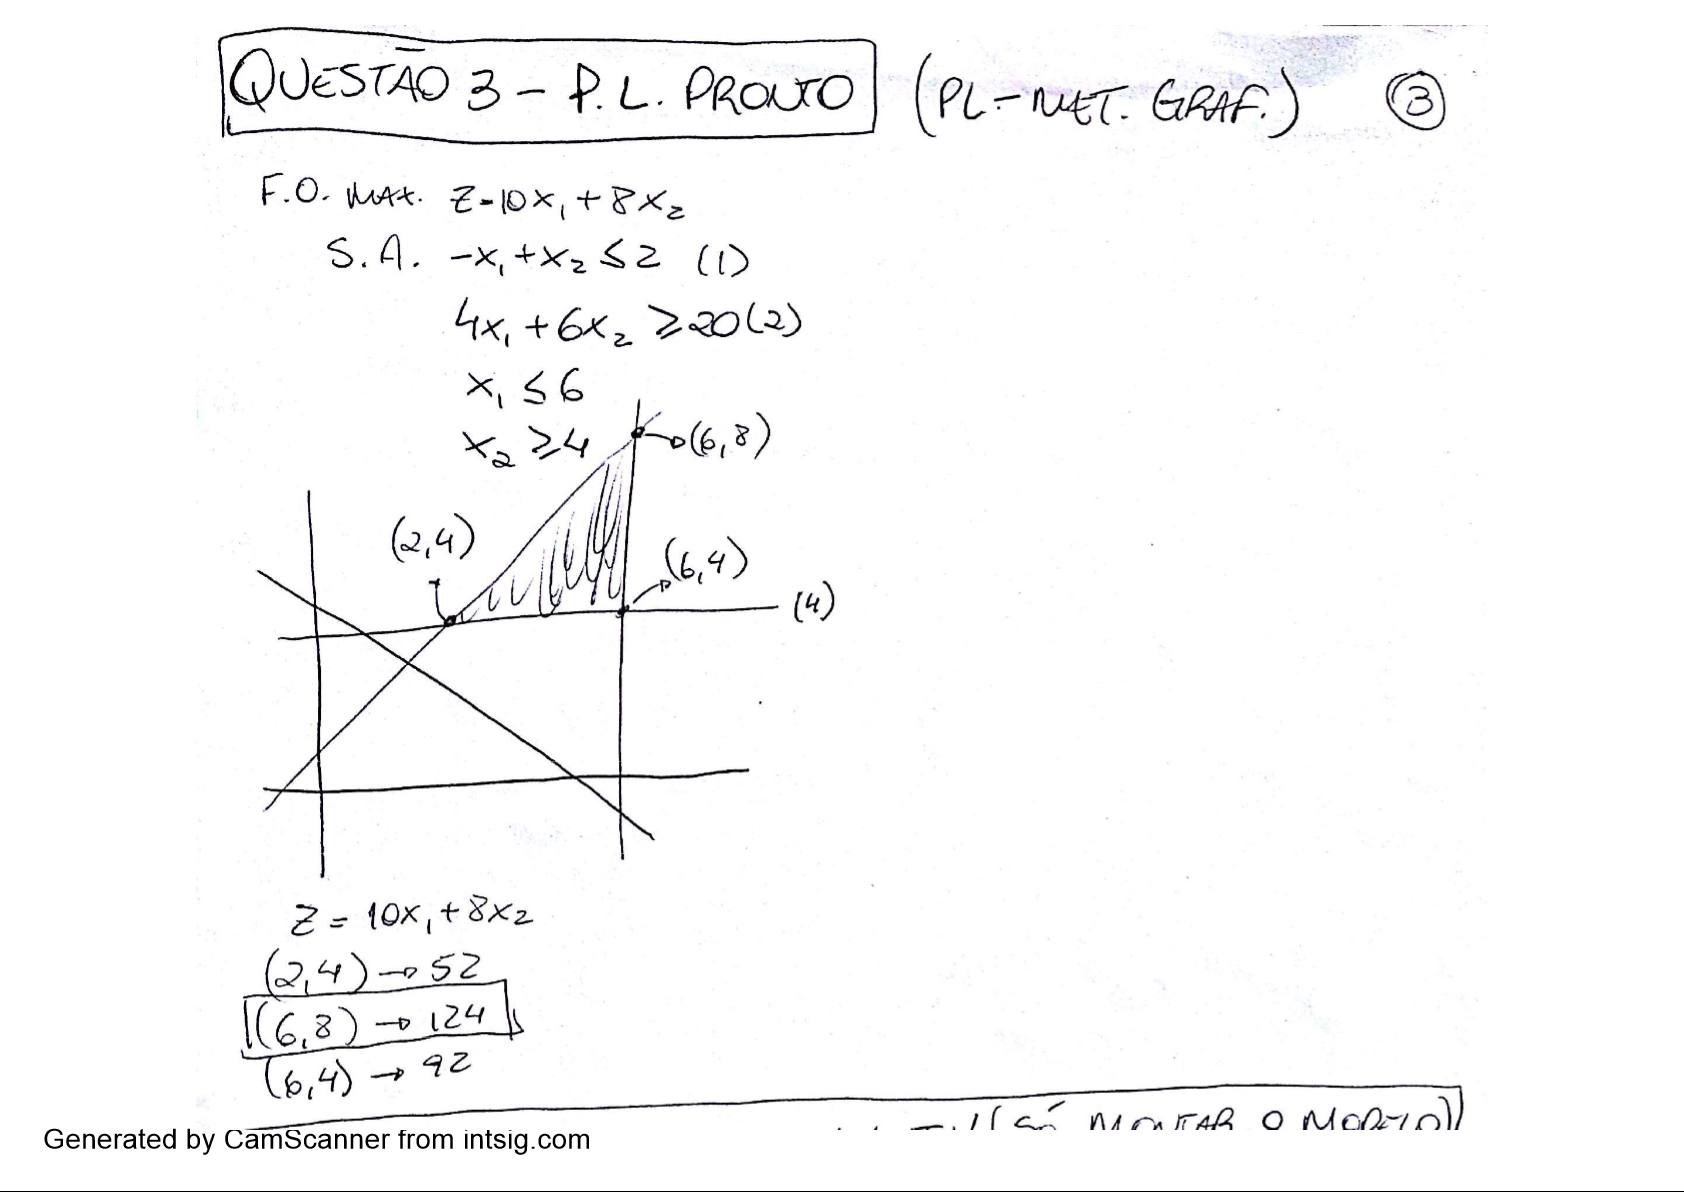 QUESTÃO 3 - P.L. PRONTO (PL-MET. GRAF.) 3
F.O. MAX. Z=10x₁+8x₂
S.A. -x₁+x₂≤2 (1)
4x₁+6x₂≥20(2)
x₁≤6
x₂≥4
(6,8)
(2,4)
(6,4)
(4)
Z=10x₁+8x₂
(2,4)→52
(6,8)→124
(6,4)→92
(SÓ MONTAR O MODELO)
Generated by CamScanner from intsig.com